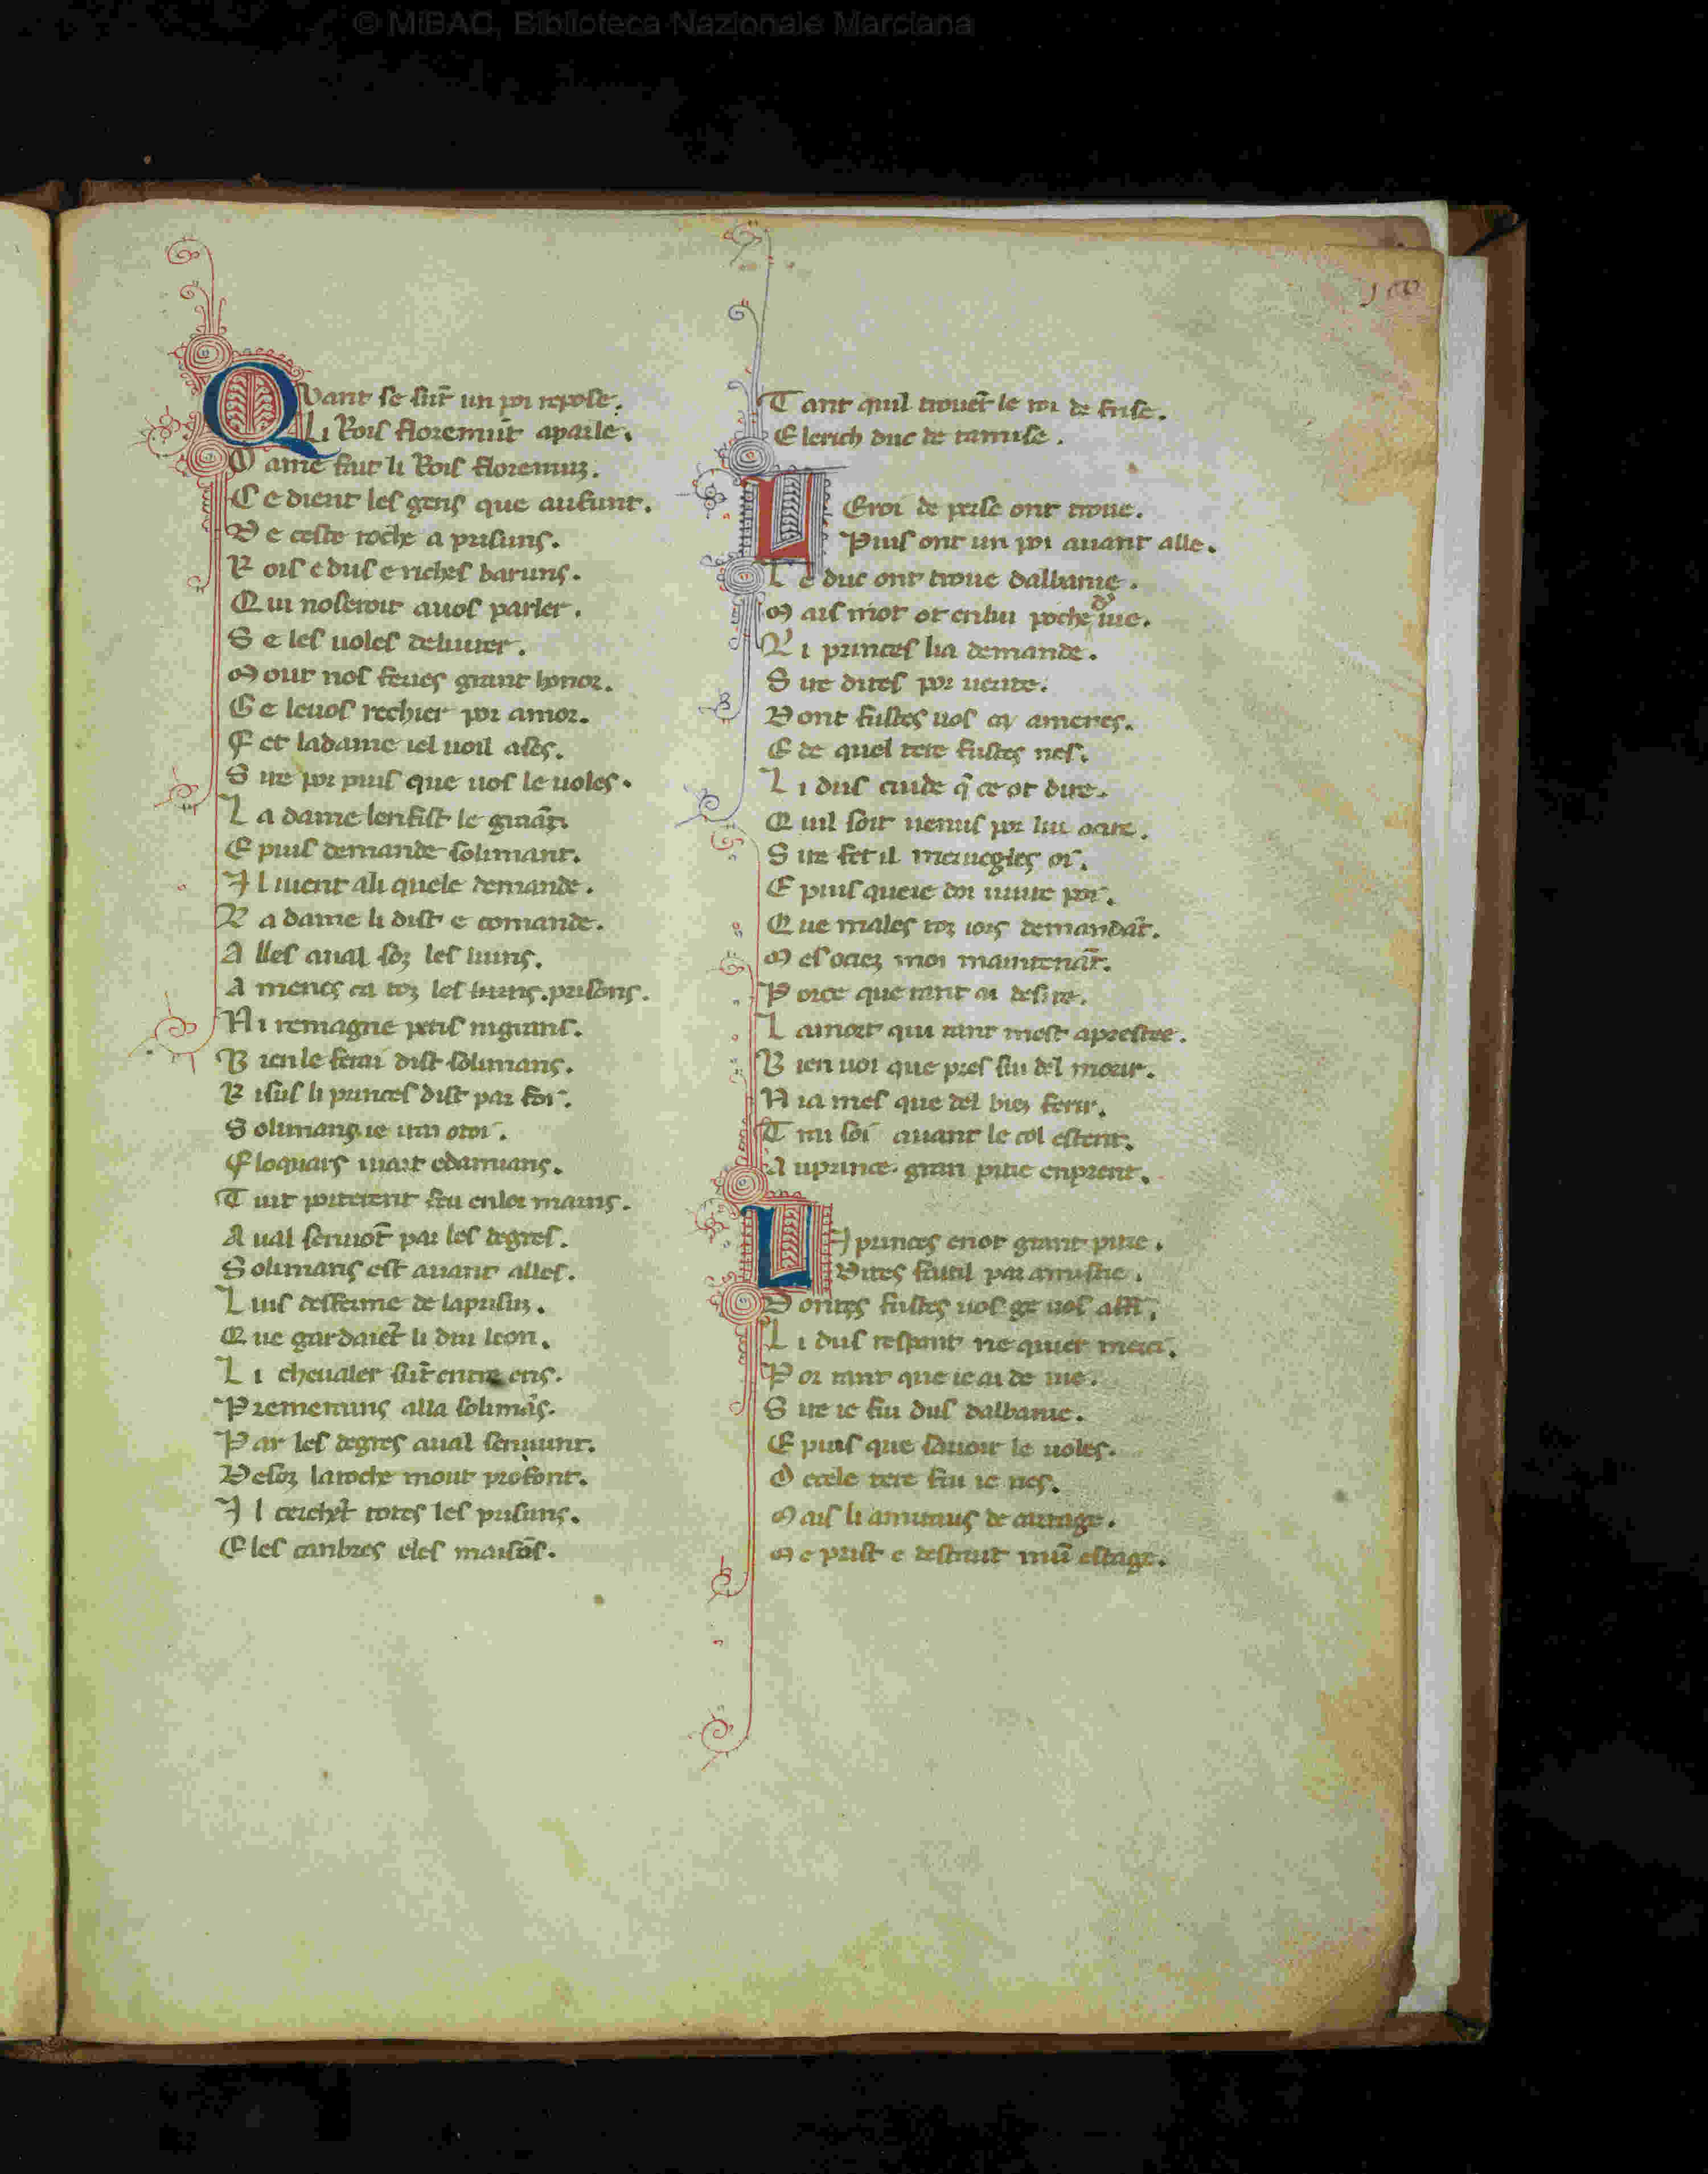 © MiBAC, Biblioteca Nazionale Marciana
Qvant se sūt un poi repose.
Li Rois floremūt aparle.
Dame fait li Rois floremuz.
Ce dient les gens que aufunt.
De ceste roche a prisuns.
Rois e dus e riches baruns.
Qui noseroit auos parler.
Se les uoles deliurer.
Mout nos feres grant honor.
Ge leuos rechier por amor.
Fet ladame iel uoil ases.
Sire poi puis que uos le uoles.
La dame lenfist le
E puis demande solimant.
Il uient ali quele demande.
La dame li dist e comande.
Alles aual soz les
Amenes ca toz les prisons.
Ni remagne petis nigrans.
Bien le ferai dist solimans.
Risus li princes dist par foi.
Solimans ie
E loquars
Tuit porterent feu enlor mains.
Aual senuōt par les degres.
Solimans est auant alles.
Luis desferme de laprisun.
Que gardaiēt li dui leon.
Li cheualer sūt entre ens.
Premerains alla solimās.
Par les degres aual senuunt.
Desoz laroche mout profont.
Il cerchēt totes les prisuns.
E les canbres eles maisōs.
Tant quil trouēt le roi de frise.
E lerich duc de tamise.
Le roi de perse ont troue.
Puis ont un poi auant alle.
Le duc ont troue dalbanie.
Mais mot ot enlui poche de uie.
Li princes lia demande.
Sire dites por uerite.
Dont fustes uos ca amenes.
E de quel tere fustes nes.
Li dus cuide q̄ ce ot dire.
Quil soit uenus por lui ocire.
Sire fet il
E puis queie doi
Que males toz iors demandāt.
Mes ociez moi maintenāt.
Porce que tant ai desire.
La mort qui tant mest aprestee.
Bien uoi que pres sui del morir.
Nia mes que del bien ferir.
Auprince gran pitie enprent.
Li princes enot grant pitie.
Dites feutil par amistie.
Dont fustes uos ge uos
Li dus respont ne quier merci.
Por tant que ie ai de uie.
Sire ie fui dus dalbanie.
E puis que sauoir le uoles.
O cele tere fui ie nes.
Mais li amiraus de cartage.
Me prist e destruit mū estage.